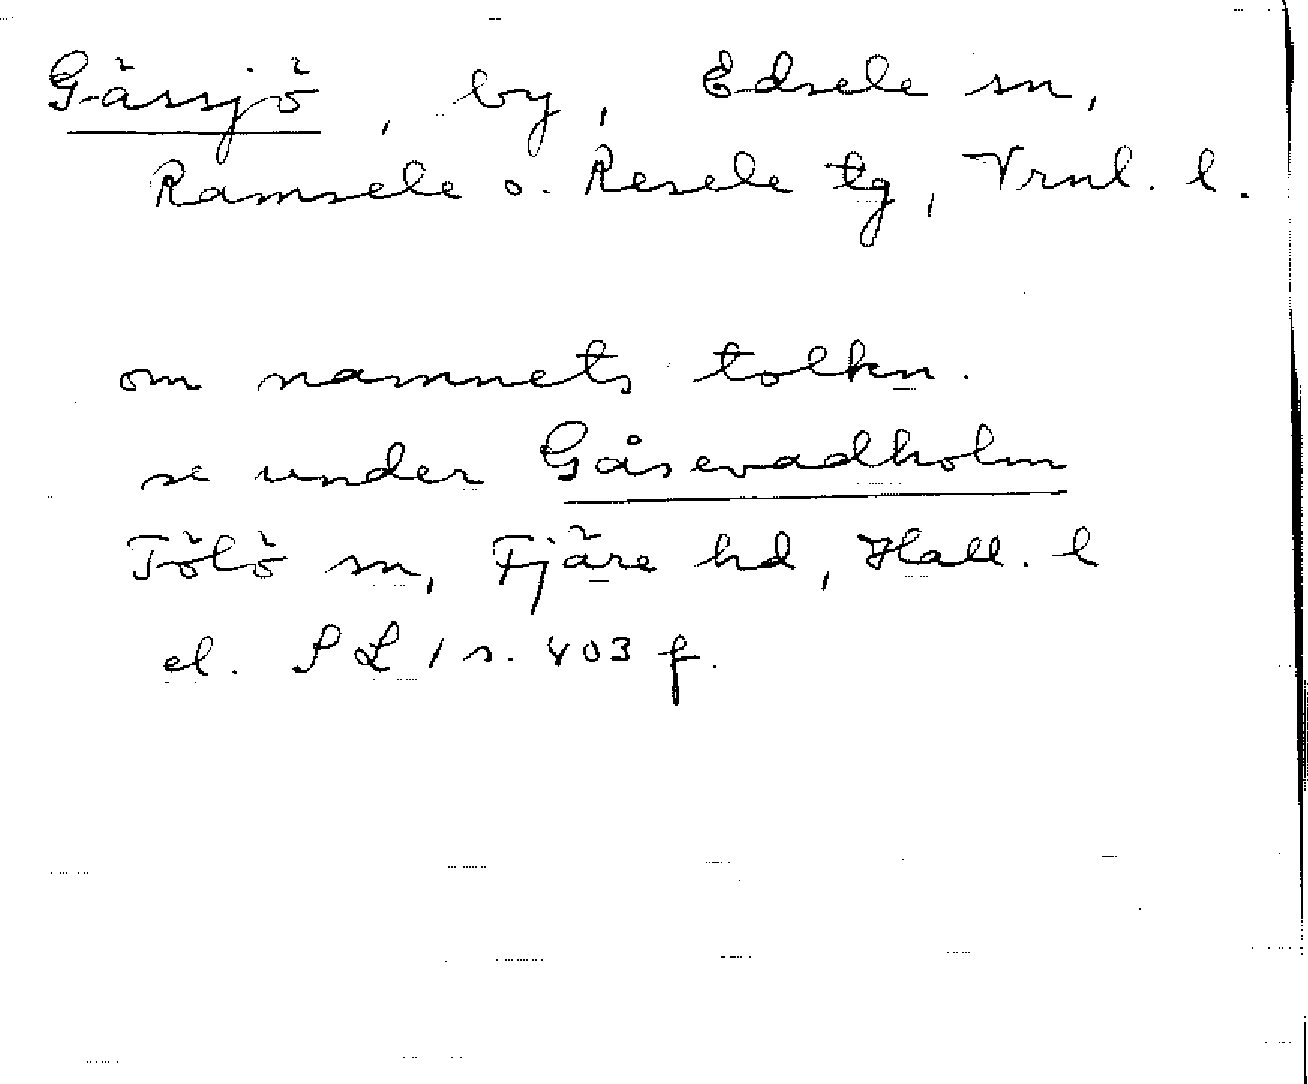 Gässjö, by, Edsele sn,
Ramsele o. Resele tg, Vrnl. l.
om namnets tolkn.
se under Gåsevadholm
Tölö sn, Fjäre hd, Hall. l
el. SL 1 s. 403 f.